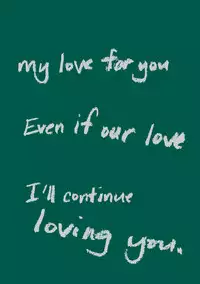 my love for you
Even if our love
I'll continue
loving you.